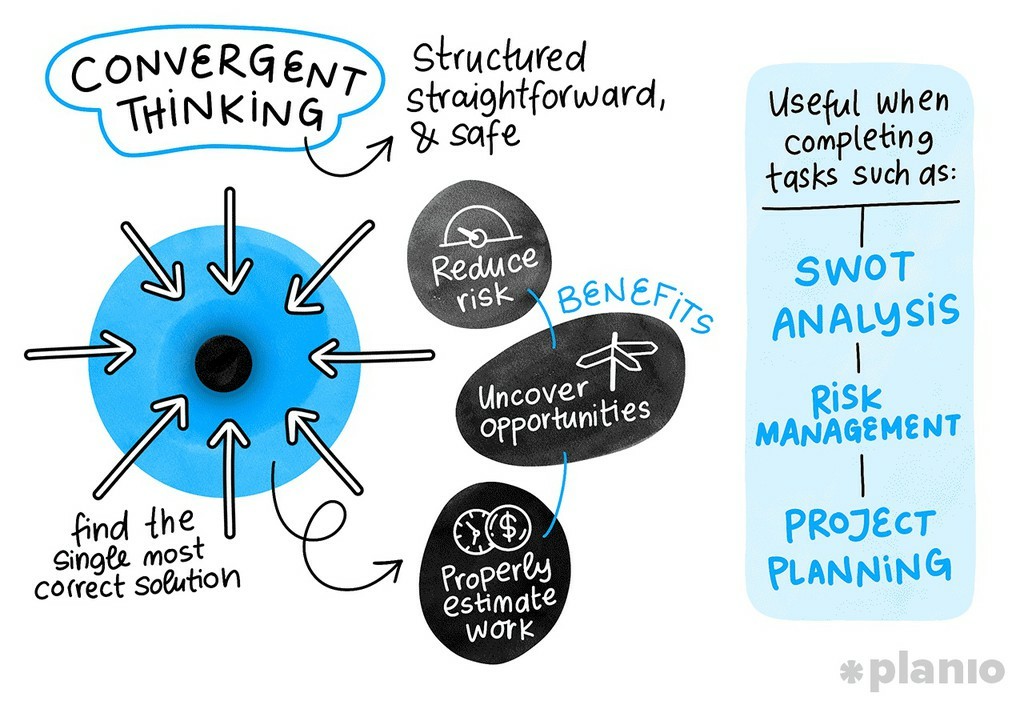 CONVERGENT
THINKING
Structured
straightforward,
& safe
find the
single most
correct solution
Reduce
risk
BENEFITS
Uncover
opportunities
$
Properly
estimate
work
Useful when
completing
tasks such as:
SWOT
ANALYSIS
RISK
MANAGEMENT
PROJECT
PLANNING
*planio